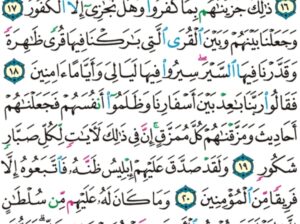 ١٦ ذَٰلِكَ جَزَيْنَـٰهُم بِمَا كَفَرُوا۟ وَهَلْ نُجَـٰزِىٓ إِلَّا ٱلْكَفُورَ ١٧
وَجَعَلْنَا بَيْنَهُمْ وَبَيْنَ ٱلْقُرَى ٱلَّتِى بَـٰرَكْنَا فِيهَا قُرًى ظَـٰهِرَةً
وَقَدَّرْنَا فِيهَا ٱلسَّيْرَ سِيرُوا۟ فِيهَا لَيَالِىَ وَأَيَّامًا ءَامِنِينَ ١٨
فَقَالُوا۟ رَبَّنَا بَـٰعِدْ بَيْنَ أَسْفَارِنَا وَظَلَمُوٓا۟ أَنفُسَهُمْ فَجَعَلْنَـٰهُمْ
أَحَادِيثَ وَمَزَّقْنَـٰهُمْ كُلَّ مُمَزَّقٍ إِنَّ فِى ذَٰلِكَ لَـَٔايَـٰتٍ لِّكُلِّ صَبَّارٍ
شَكُورٍ ١٩ وَلَقَدْ صَدَّقَ عَلَيْهِمْ إِبْلِيسُ ظَنَّهُۥ فَٱتَّبَعُوهُ إِلَّا
فَرِيقًا مِّنَ ٱلْمُؤْمِنِينَ ٢٠ وَمَا كَانَ لَهُۥ عَلَيْهِم مِّن سُلْطَـٰنٍ